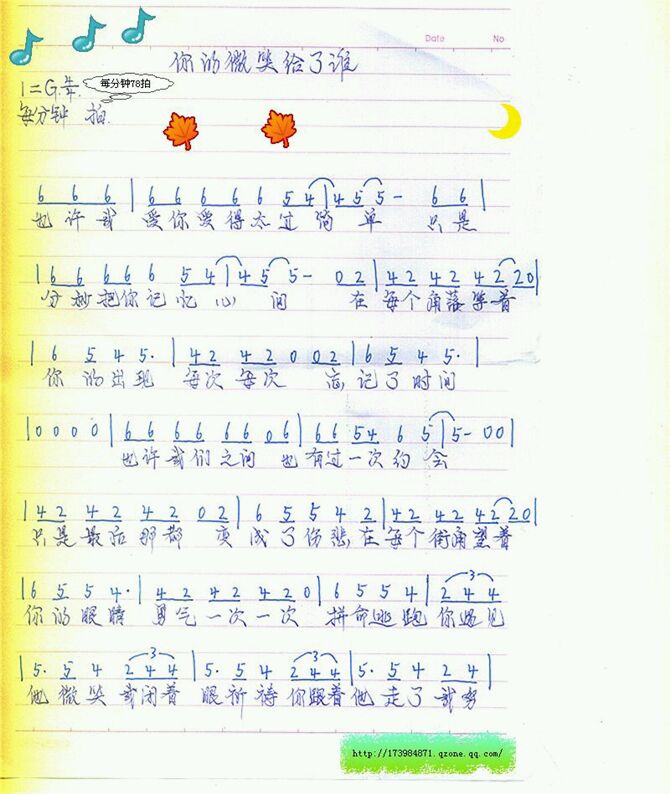 Date No
你的微笑给了谁
1=G 4/4
每分钟78拍
每分钟 拍
6 6 6 | 6 6 6 6 6 5 4 | 4 5 5 - 6 6 |
也许我 爱你爱得太过简单 只是
| 6 6 6 6 6 5 4 | 4 5 5 - 0 2 | 4 2 4 2 4 2 2 0 |
分秒把你记忆心间 在每个角落等着
| 6 5 4 5· | 4 2 4 2 0 0 2 | 6 5 4 5· |
你的出现 每次每次 忘记了时间
| 0 0 0 0 | 6 6 6 6 6 6 0 6 | 6 6 5 4 6 5 | 5 - 0 0 |
也许我们之间 也有过一次约会
| 4 2 4 2 4 2 0 2 | 6 5 5 4 2 | 4 2 4 2 4 2 2 0 |
只是最后那都 变成了伤悲在每个街角望着
| 6 5 5 4· | 4 2 4 2 4 2 0 | 6 5 5 4 | 2 4 4 |
你的眼睛 勇气一次一次 拼命逃跑你遇见
| 5· 5 4 2 4 4 | 5· 5 4 2 4 4 | 5· 5 4 2 4 |
他微笑我闭着 眼祈祷你跟着他走了我
http://173984871.qzone.qq.com/